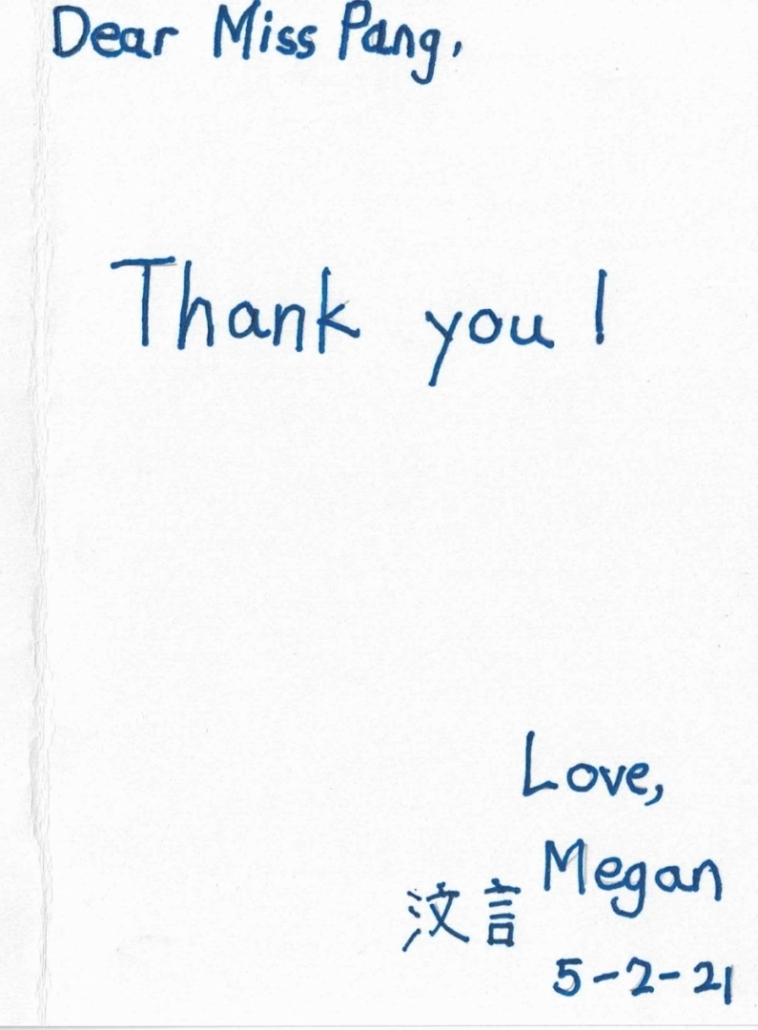 Dear Miss Pang,
Thank you!
Love,
Megan
汶言
5-2-21